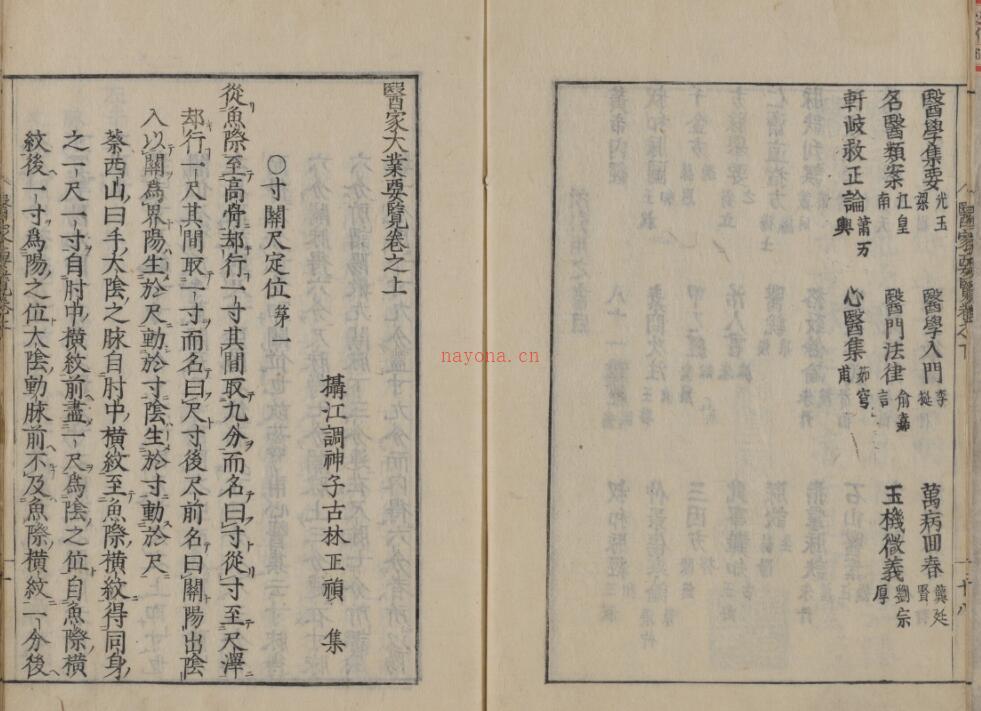 醫學集要 尤玉梁 醫學入門 李梴 萬病回春 龔廷賢
名醫類案 江皇南 醫門法律 俞嘉言 玉機微義 劉宗厚
軒岐救正論 蕭万輿 心醫集 茹穹甫
醫家大業要覽卷之上
攝江調神子古林正禎 集
○寸關尺定位 第一
從魚際至高骨却行一寸其間取九分而名曰寸從寸至尺澤
却行一尺其間取一寸而名曰尺寸後尺前名曰關陽出陰
入以關為界陽生於尺動於寸陰生於寸動於尺
蔡西山曰手太陰之脉自肘中橫紋至魚際橫紋得同身
之一尺一寸自肘中橫紋前盡一尺為陰之位自魚際橫
紋後一寸為陽之位太陰動脉前不及魚際橫紋一分後
nayona.cn